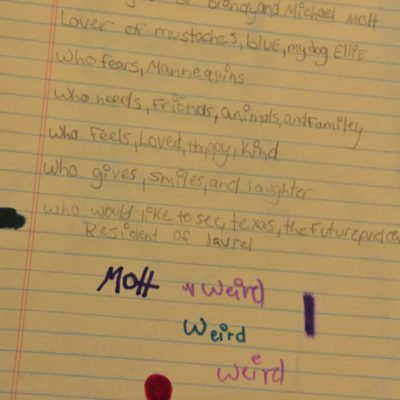 of Brandy and Michael Mott
Lover of mustaches, blue, my dog Ellie
Who fears, Mannequins
Who needs, Friends, animals, and Familey
Who Feels, Loved, Happy, Kind
Who gives, smiles, and laughter
Who would like to see, texas, the Future, and
Resident of laurel
Mott weird
weird
weird